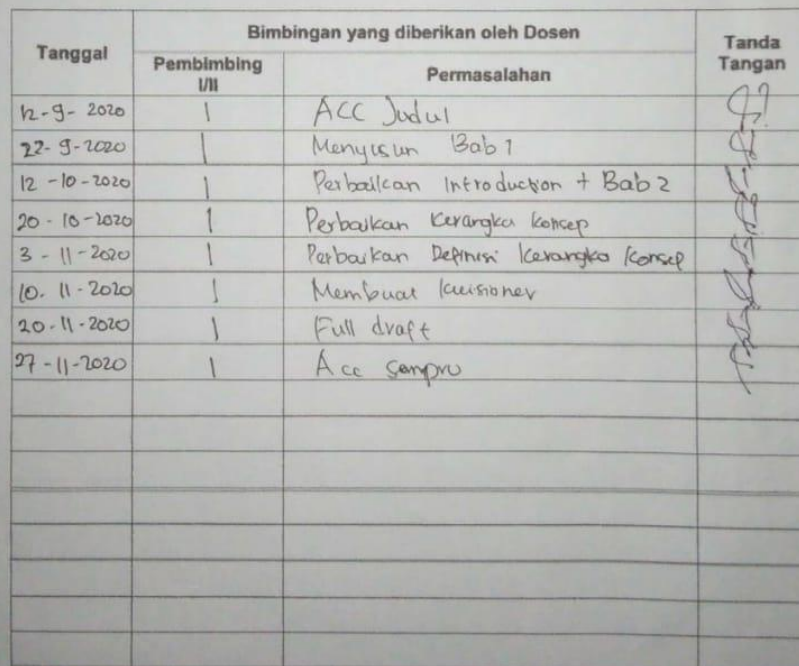 Tanggal Bimbingan yang diberikan oleh Dosen Tanda Tangan
Pembimbing I/II Permasalahan
12-9-2020 I ACC Judul
22-9-2020 I Menyusun Bab 1
12-10-2020 I Perbaikan Introduction + Bab 2
20-10-2020 I Perbaikan Kerangka Konsep
3-11-2020 I Perbaikan Definisi Kerangka Konsep
10.11-2020 I Membuat kuisioner
20-11-2020 I Full draft
27-11-2020 I Acc sempro